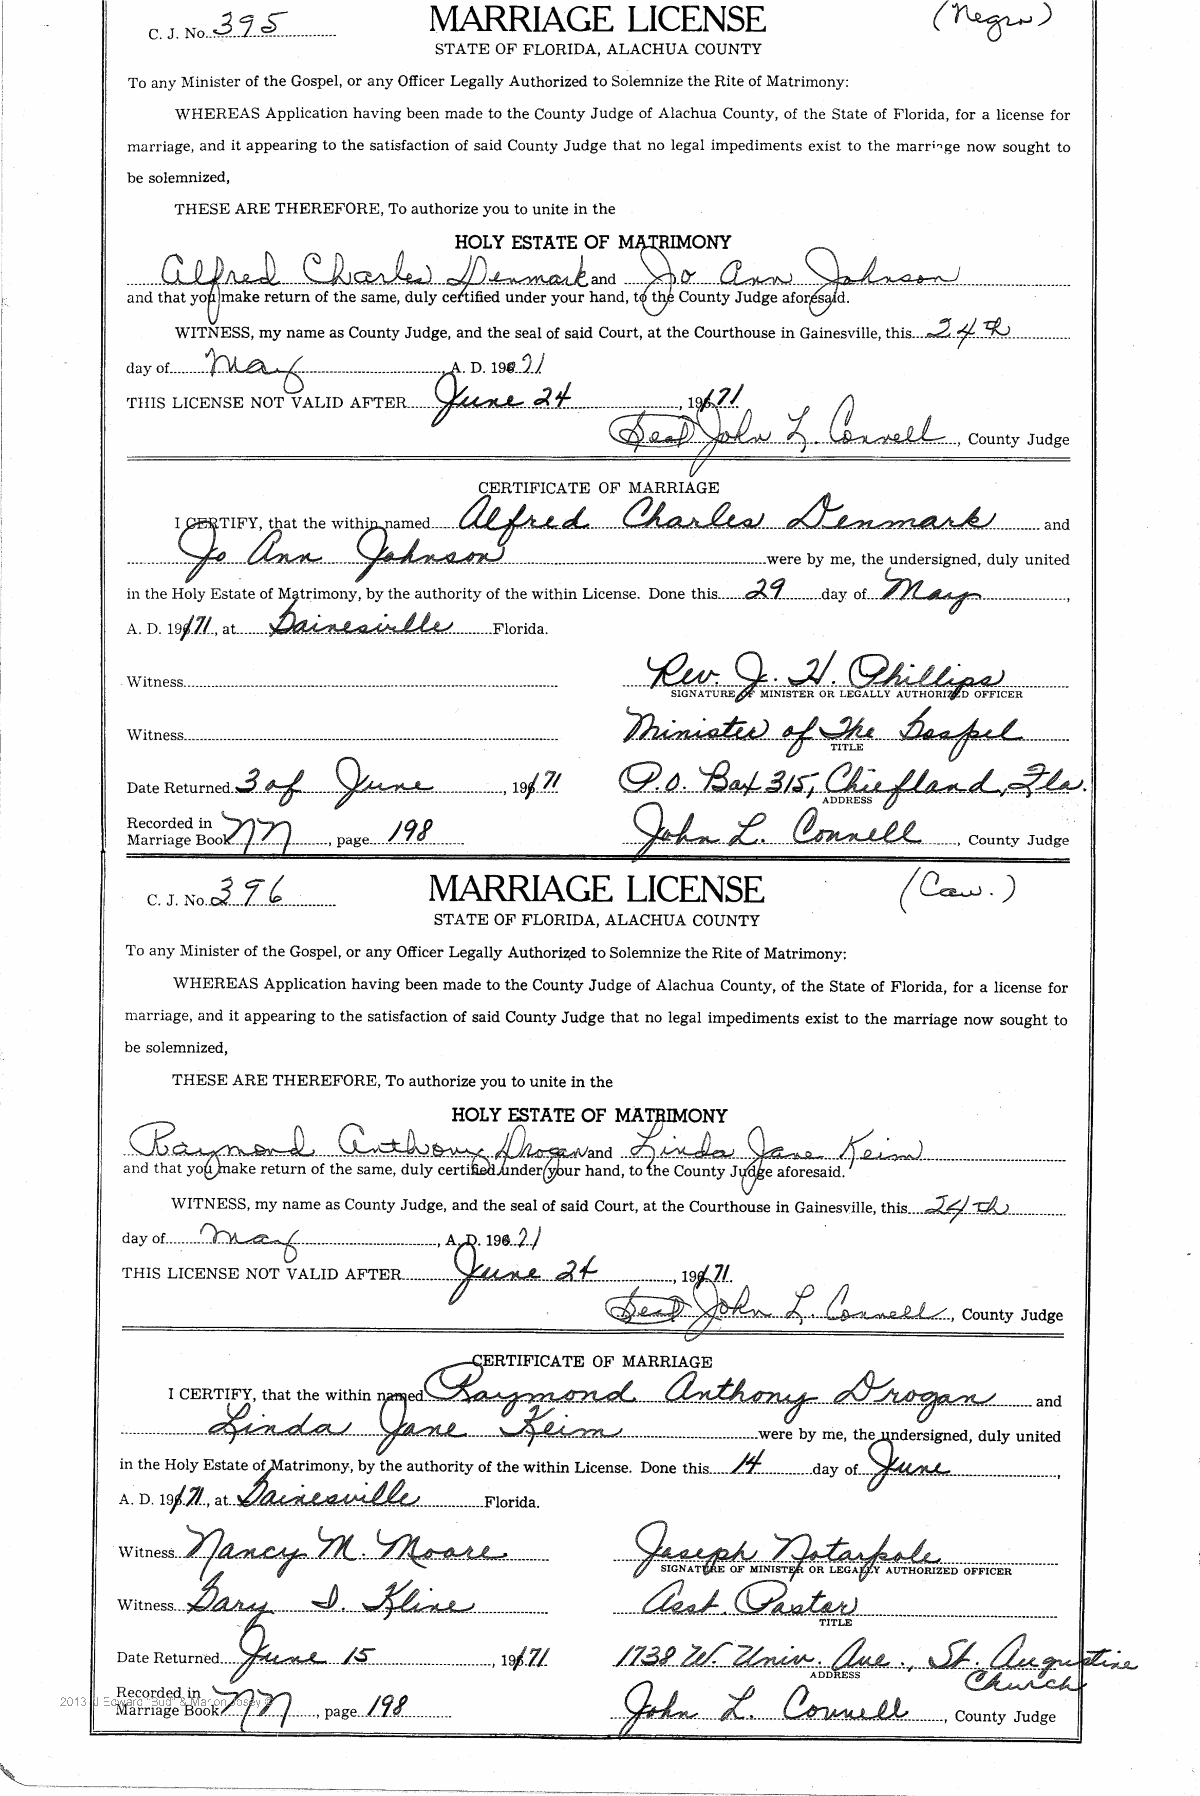 C. J. No. 395 MARRIAGE LICENSE (Negro)
STATE OF FLORIDA, ALACHUA COUNTY
To any Minister of the Gospel, or any Officer Legally Authorized to Solemnize the Rite of Matrimony:
WHEREAS Application having been made to the County Judge of Alachua County, of the State of Florida, for a license for
marriage, and it appearing to the satisfaction of said County Judge that no legal impediments exist to the marriage now sought to
be solemnized,
THESE ARE THEREFORE, To authorize you to unite in the
HOLY ESTATE OF MATRIMONY
Alfred Charles Denmark and Jo Ann Johnson
and that you make return of the same, duly certified under your hand, to the County Judge aforesaid.
WITNESS, my name as County Judge, and the seal of said Court, at the Courthouse in Gainesville, this 24th
day of May, A. D. 1971
THIS LICENSE NOT VALID AFTER June 24, 1971
(Seal) John L. Connell, County Judge
CERTIFICATE OF MARRIAGE
I CERTIFY, that the within named Alfred Charles Denmark and
Jo Ann Johnson were by me, the undersigned, duly united
in the Holy Estate of Matrimony, by the authority of the within License. Done this 29 day of May,
A. D. 1971, at Gainesville Florida.
Witness Rev. J. H. Phillips
SIGNATURE OF MINISTER OR LEGALLY AUTHORIZED OFFICER
Witness Minister of The Gospel
TITLE
Date Returned 3 of June, 1971 P.O. Box 315, Chiefland, Fla.
ADDRESS
Recorded in
Marriage Book NN, page 198 John L. Connell, County Judge
C. J. No. 396 MARRIAGE LICENSE (Cau.)
STATE OF FLORIDA, ALACHUA COUNTY
To any Minister of the Gospel, or any Officer Legally Authorized to Solemnize the Rite of Matrimony:
WHEREAS Application having been made to the County Judge of Alachua County, of the State of Florida, for a license for
marriage, and it appearing to the satisfaction of said County Judge that no legal impediments exist to the marriage now sought to
be solemnized,
THESE ARE THEREFORE, To authorize you to unite in the
HOLY ESTATE OF MATRIMONY
Raymond Anthony Drogan and Linda Jane Keim
and that you make return of the same, duly certified under your hand, to the County Judge aforesaid.
WITNESS, my name as County Judge, and the seal of said Court, at the Courthouse in Gainesville, this 24th
day of May, A. D. 1971
THIS LICENSE NOT VALID AFTER June 24, 1971
(Seal) John L. Connell, County Judge
CERTIFICATE OF MARRIAGE
I CERTIFY, that the within named Raymond Anthony Drogan and
Linda Jane Keim were by me, the undersigned, duly united
in the Holy Estate of Matrimony, by the authority of the within License. Done this 14 day of June,
A. D. 1971, at Gainesville Florida.
Witness Nancy M. Moore Joseph Notarpole
SIGNATURE OF MINISTER OR LEGALLY AUTHORIZED OFFICER
Witness Gary D. Kline Asst. Pastor
TITLE
Date Returned June 15, 1971 1738 W. Univ. Ave., St. Augustine
ADDRESS Church
Recorded in
2013 J Edward "Bud" & Marion Josey
Marriage Book NN, page 198 John L. Connell, County Judge